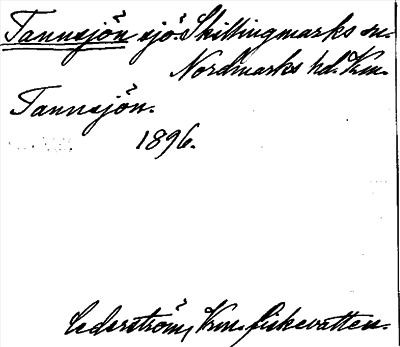 Tannsjön sjö. Skillingmarks sn.
Nordmarks hd. Krm.
Tannsjön.
1896.
Cederström, Krm. fiskevatten.